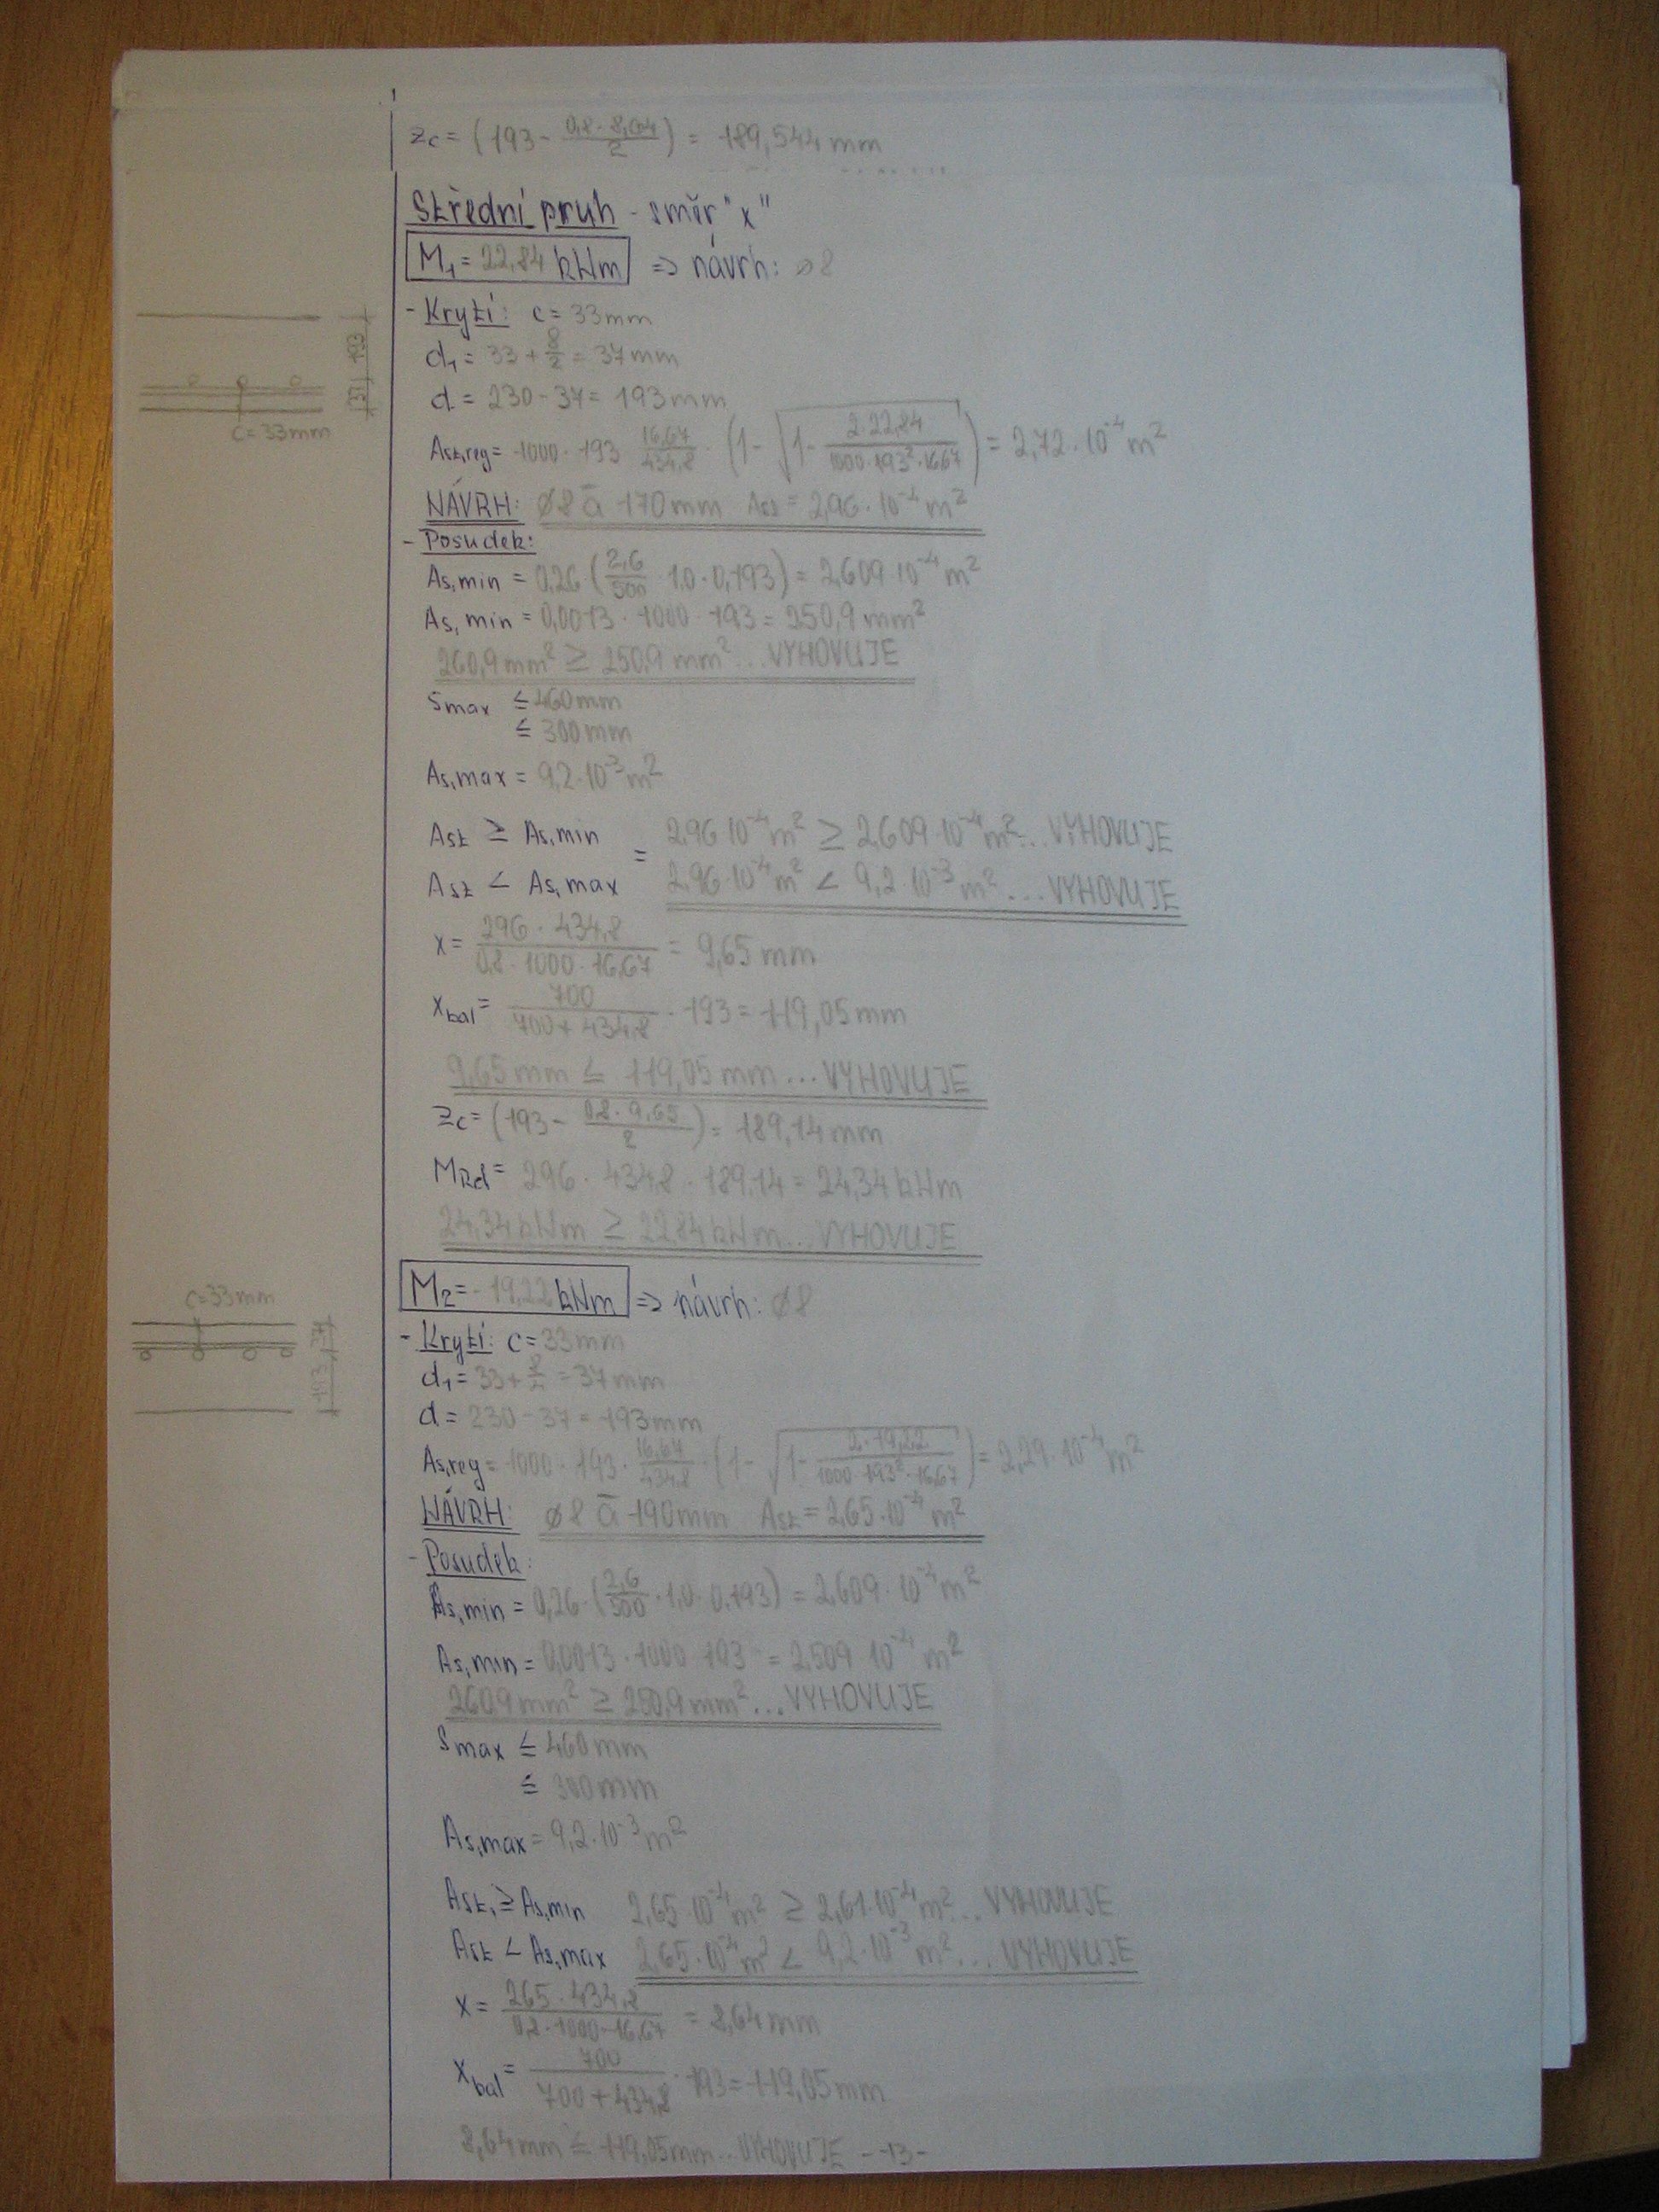 zc = (193 - 0,8·8,64/2) = 189,544 mm
Střední pruh - směr "x"
M1 = 22,84 kNm => návrh: ø8
- Krytí: c = 33mm
193
37
c=33mm
d1 = 33 + 8/2 = 37mm
d = 230 - 37 = 193mm
Ast,reg = 1000 · 193 · 16,67/434,8 · (1 - √(1 - 2·22,84/1000·193²·16,67)) = 2,72·10⁻⁴ m²
NÁVRH: ø8 ā 170mm Ast = 2,96·10⁻⁴ m²
- Posudek:
As,min = 0,26·(2,6/500 · 1,0 · 0,193) = 2,609·10⁻⁴ m²
As,min = 0,0013 · 1000 · 193 = 250,9 mm²
260,9 mm² ≥ 250,9 mm² ... VYHOVUJE
smax ≤ 460mm
≤ 300mm
As,max = 9,2·10⁻³ m²
Ast ≥ As,min = 2,96·10⁻⁴ m² ≥ 2,609·10⁻⁴ m² ... VYHOVUJE
Ast < As,max 2,96·10⁻⁴ m² < 9,2·10⁻³ m² ... VYHOVUJE
x = 296 · 434,8/0,8 · 1000 · 16,67 = 9,65 mm
xbal = 700/700 + 434,8 · 193 = 119,05 mm
9,65 mm ≤ 119,05 mm ... VYHOVUJE
zc = (193 - 0,8·9,65/2) = 189,14 mm
MRd = 296 · 434,8 · 189,14 = 24,34 kNm
24,34 kNm ≥ 22,84 kNm ... VYHOVUJE
M2 = -19,22 kNm => návrh: ø8
c=33mm
37
193
- Krytí: c = 33mm
d1 = 33 + 8/2 = 37mm
d = 230 - 37 = 193mm
As,reg = 1000 · 193 · 16,67/434,8 · (1 - √(1 - 2·19,22/1000·193²·16,67)) = 2,29·10⁻⁴ m²
NÁVRH: ø8 ā 190mm Ast = 2,65·10⁻⁴ m²
- Posudek:
As,min = 0,26·(2,6/500 · 1,0 · 0,193) = 2,609·10⁻⁴ m²
As,min = 0,0013 · 1000 · 193 = 2,509·10⁻⁴ m²
260,9 mm² ≥ 250,9 mm² ... VYHOVUJE
smax ≤ 460mm
≤ 300mm
As,max = 9,2·10⁻³ m²
Ast, ≥ As,min 2,65·10⁻⁴ m² ≥ 2,61·10⁻⁴ m² ... VYHOVUJE
Ast < As,max 2,65·10⁻⁴ m² < 9,2·10⁻³ m² ... VYHOVUJE
x = 265 · 434,8/0,8 · 1000 · 16,67 = 8,64 mm
xbal = 700/700 + 434,8 · 193 = 119,05 mm
8,64 mm ≤ 119,05 mm ... VYHOVUJE -13-